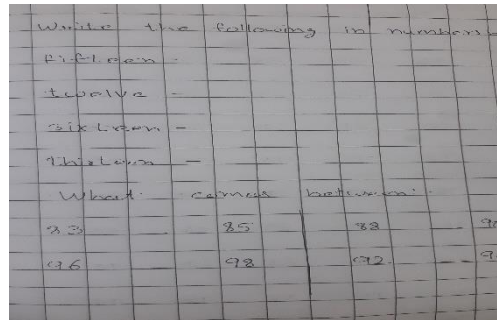 Write the following in numbers
fifteen -
twelve -
sixteen -
thirteen -
What comes between.
83 __ 85 88 __ 90
96 __ 98 92 __